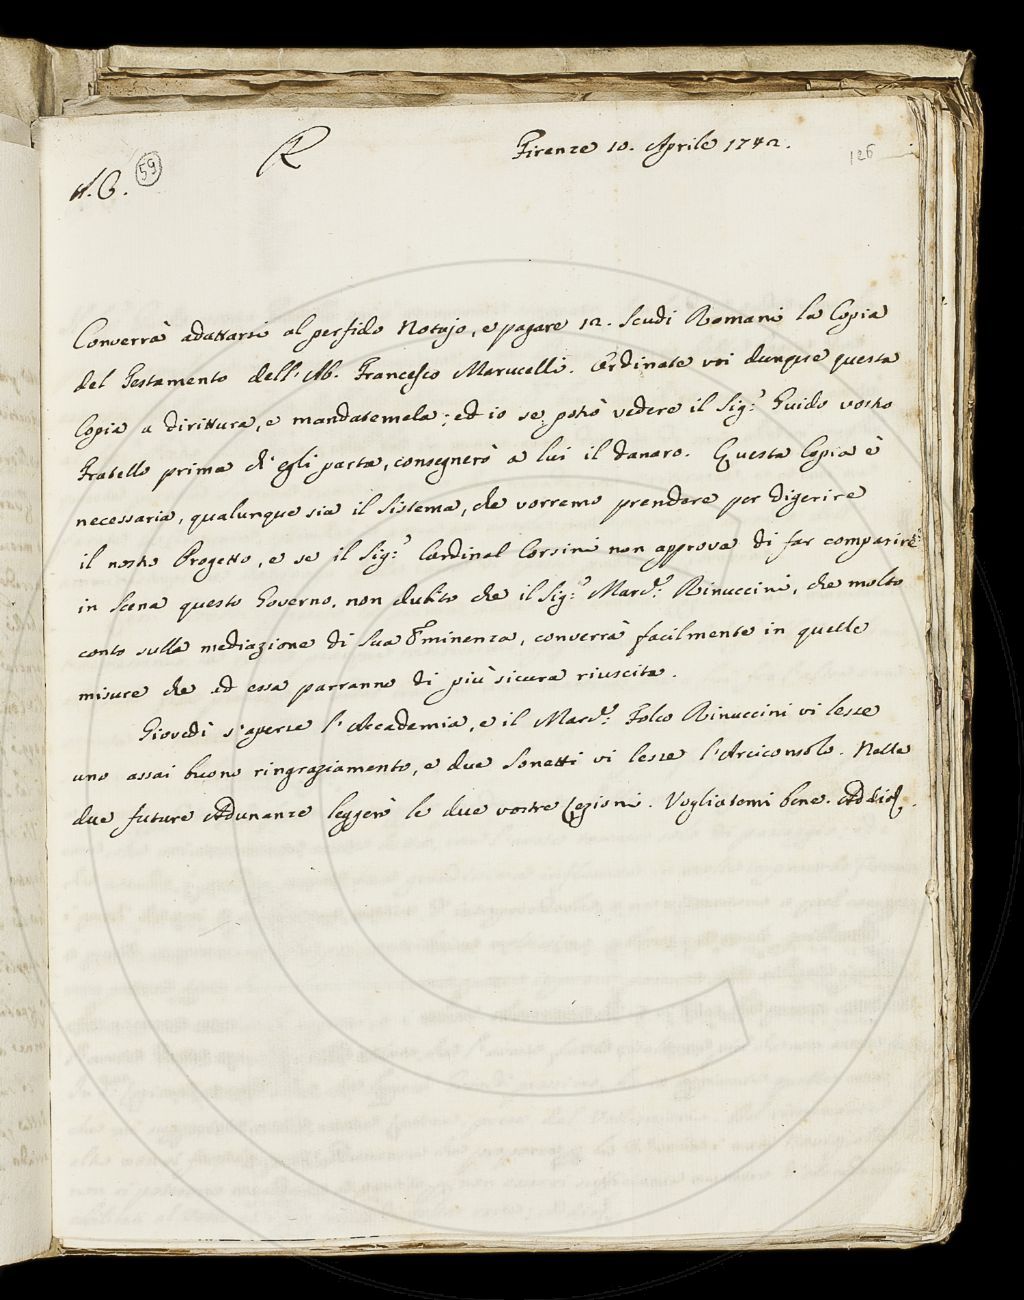 R
Firenze 10. Aprile 1742.
126
A.C. 59
Converrà adattarsi al perfido Notajo, e pagare 12. Scudi Romani la Copia
del Testamento dell'Ab. Francesco Marucelli. Ordinate voi dunque questa
Copia a dirittura, e mandatemela; ed io se potrò vedere il Sig.r Guido vostro
Fratello prima ch'egli parta, consegnerò a lui il danaro. Questa Copia è
necessaria, qualunque sia il sistema, che vorremo prendere per digerire
il nostro Progetto, e se il Sig.r Cardinal Corsini non approva di far comparire
in scena questo Governo, non dubito che il Sig.r March.e Rinuccini, che molto
conta sulla mediazione di Sua Eminenza, converrà facilmente in quelle
misure che ad essa parranno di più sicura riuscita.
Giovedì s'aperse l'Accademia, e il March.e Folco Rinuccini vi lesse
uno assai buono ringraziamento, e due Sonetti vi lesse l'Arciconsolo. Nelle
due future Adunanze leggerò le due vostre Lezioni. Vogliatemi bene. Addio.